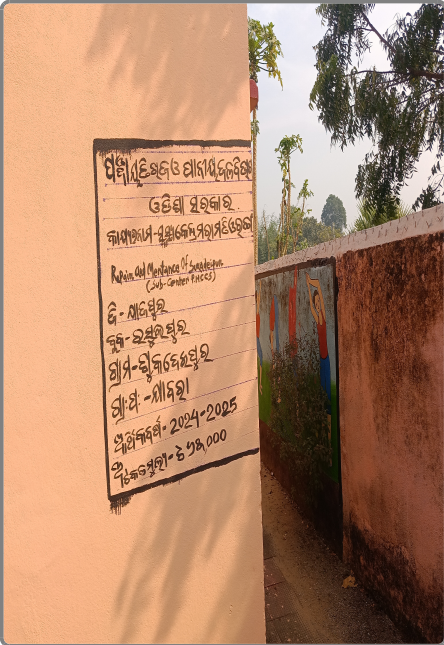 ପଞ୍ଚାୟତିରାଜ ଓ ପାନୀୟ ଜଳ ବିଭାଗ
ଓଡିଶା ସରକାର
କାର୍ଯ୍ୟର ନାମ-
Repair and Mentance Of Sukadeipur
(Sub-Center P.H.C CS)
ଜି - ଯାଜପୁର
ବ୍ଲକ - ରସୁଲପୁର
ଗ୍ରାମ - ଶୁକଦେଇପୁର
ଗ୍ରା.ପଂ -
ଆର୍ଥିକବର୍ଷ - 2024-2025
ଅଟକଳମୂଲ୍ୟ -